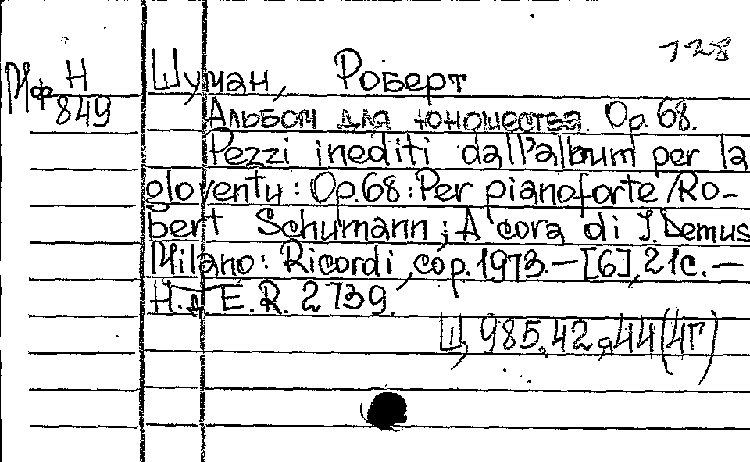 128
Мф Н 849
Шуман, Роберт
Альбом для юношества. Op. 68.
Pezzi inediti dall'album per la
gioventu : Op.68 : Per pianoforte / Ro-
bert Schumann ; A cora di J. Demus
Milano : Ricordi, cop. 1973. – [6], 21 с. –
Н. д. E.R. 2739.
Ц 985,42 а44 (4Г)